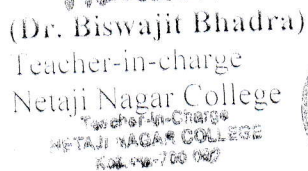 (Dr. Biswajit Bhadra)
Teacher-in-charge
Netaji Nagar College
Teacher-in-Charge
NETAJI NAGAR COLLEGE